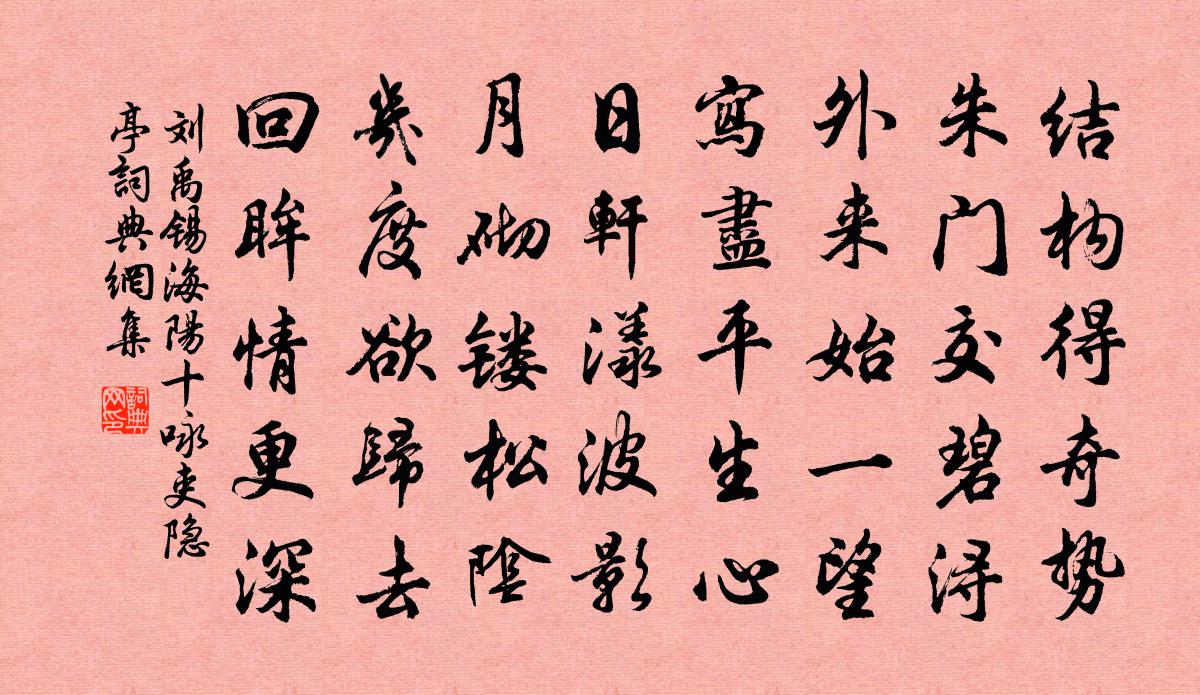 结构得奇势
朱门交碧浔
外来始一望
寫盡平生心
日軒漾波影
月砌镂松陰
幾度欲歸去
回眸情更深
刘禹锡海陽十咏吏隐
亭詞典網集
詞典
网印